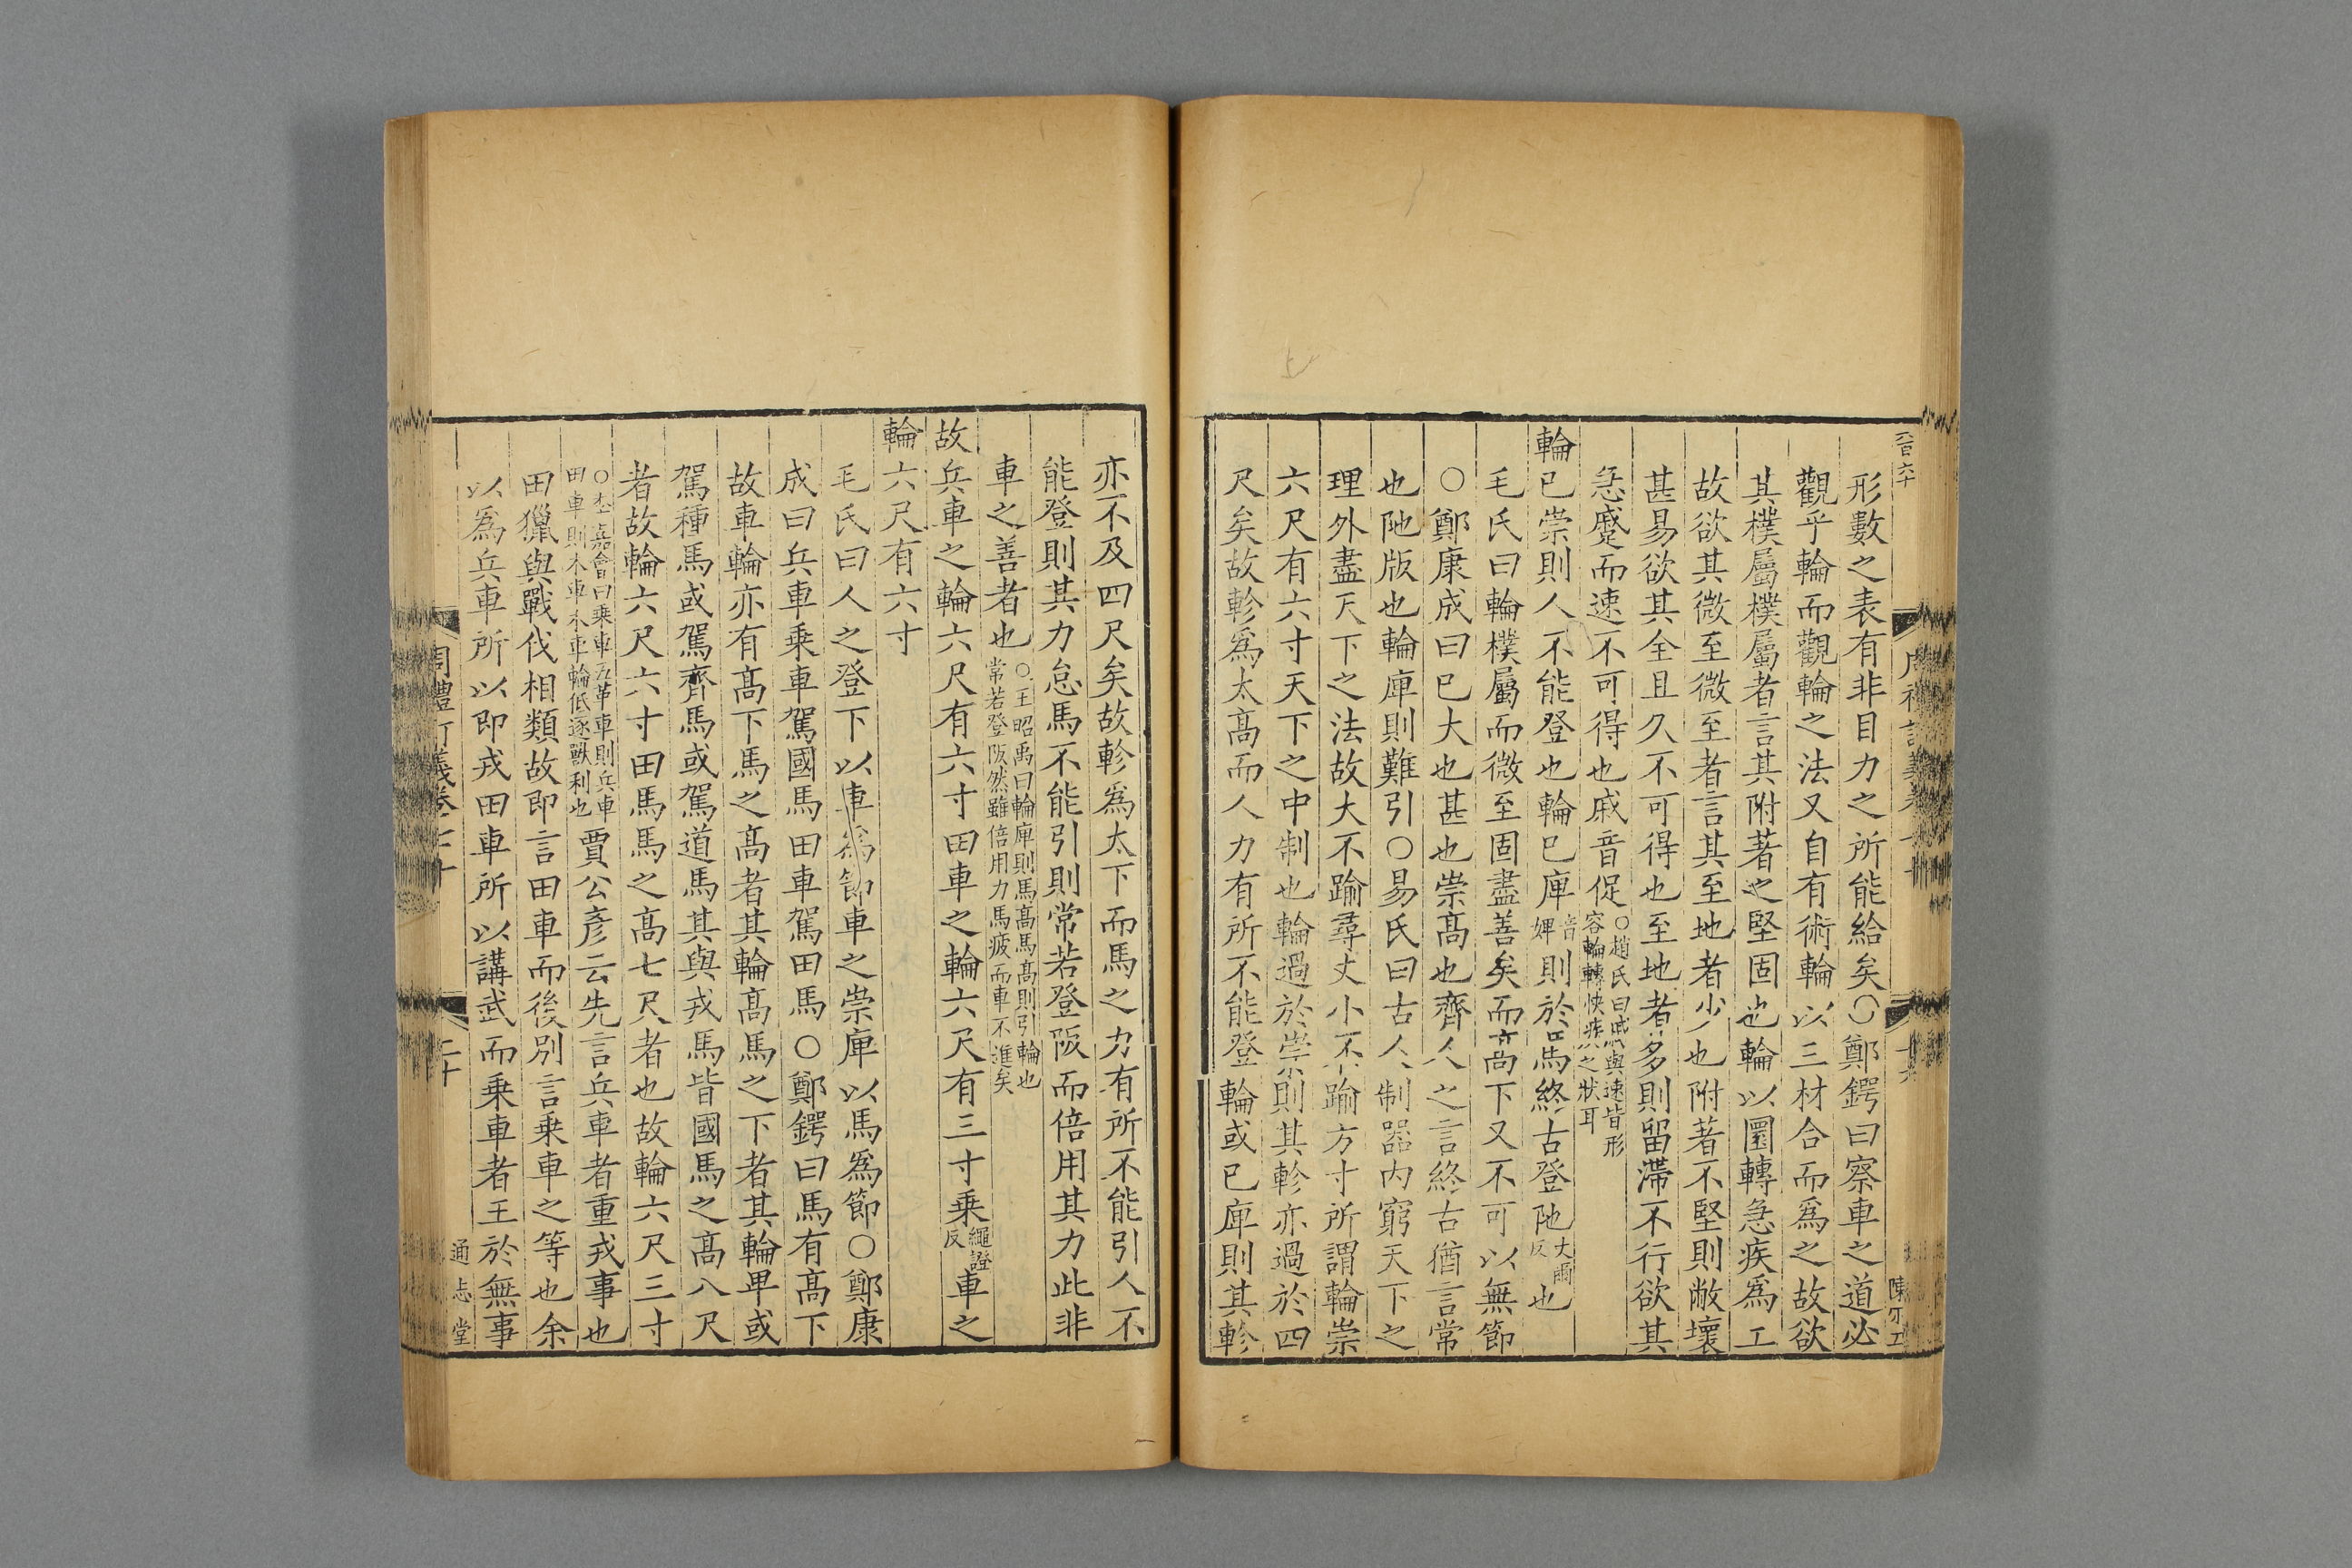 形數之表有非目力之所能給矣○鄭鍔曰察車之道必
觀乎輪而觀輪之法又自有術輪以三材合而爲之故欲
其樸屬樸屬者言其附著之堅固也輪以圜轉急疾爲工
故欲其微至微至者言其至地者少也附著不堅則敝壞
甚易欲其全且久不可得也至地者多則留滯不行欲其
急蹙而速不可得也戚音促○趙氏曰戚與速皆形容輪轉快疾之狀耳
輪已崇則人不能登也輪已庳音婢則於馬終古登阤大爾反也
毛氏曰輪樸屬而微至固盡善矣而高下又不可以無節
○鄭康成曰已大也甚也崇高也齊人之言終古猶言常
也阤版也輪庳則難引○易氏曰古人制器内窮天下之
理外盡天下之法故大不踰尋丈小不踰方寸所謂輪崇
六尺有六寸天下之中制也輪過於崇則其軫亦過於四
尺矣故軫爲太髙而人力有所不能登輪或已庳則其軫
亦不及四尺矣故軫爲太下而馬之力有所不能引人不
能登則其力怠馬不能引則常若登阪而倍用其力此非
車之善者也○王昭禹曰輪庳則馬髙馬髙則引輪也常若登阪然雖倍用力馬疲而車不進矣
故兵車之輪六尺有六寸田車之輪六尺有三寸乗繩證反車之
輪六尺有六寸
毛氏曰人之登下以車爲節車之崇庳以馬爲節○鄭康
成曰兵車乗車駕國馬田車駕田馬○鄭鍔曰馬有髙下
故車輪亦有髙下馬之髙者其輪髙馬之下者其輪卑或
駕種馬或駕齊馬或駕道馬其與戎馬皆國馬之髙八尺
者故輪六尺六寸田馬馬之髙七尺者也故輪六尺三寸
○李嘉會曰乗車五革車則兵車田車則木車木車輪低逐獸利也賈公彥云先言兵車者重戎事也
田獵與戰伐相類故即言田車而後別言乗車之等也余
以爲兵車所以即戎田車所以講武而乗車者王於無事
周禮訂義卷七十
二十
通志堂